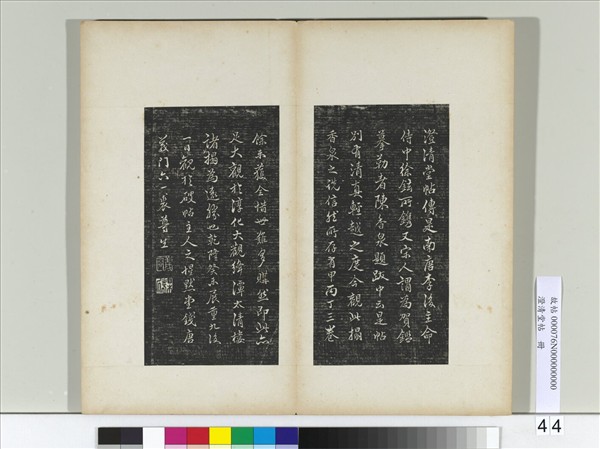 澄清堂帖傳是南唐李後主命
侍中徐鉉所鐫又宋人謂為賀鑑
摹勒者陳香泉題跋中云是帖
別有清真輕越之度今觀此搨
香泉之說信然所存者甲丙丁三卷
餘未獲全惜世難多媒然即此亦
足大觀於淳化大觀絳潭太清樓
諸搨為遠勝也乾隆癸未展重九後
一日觀於破帖主人之惺默齋錢唐
葑門六一
故帖 000076N000000000
澄清堂帖 冊
44